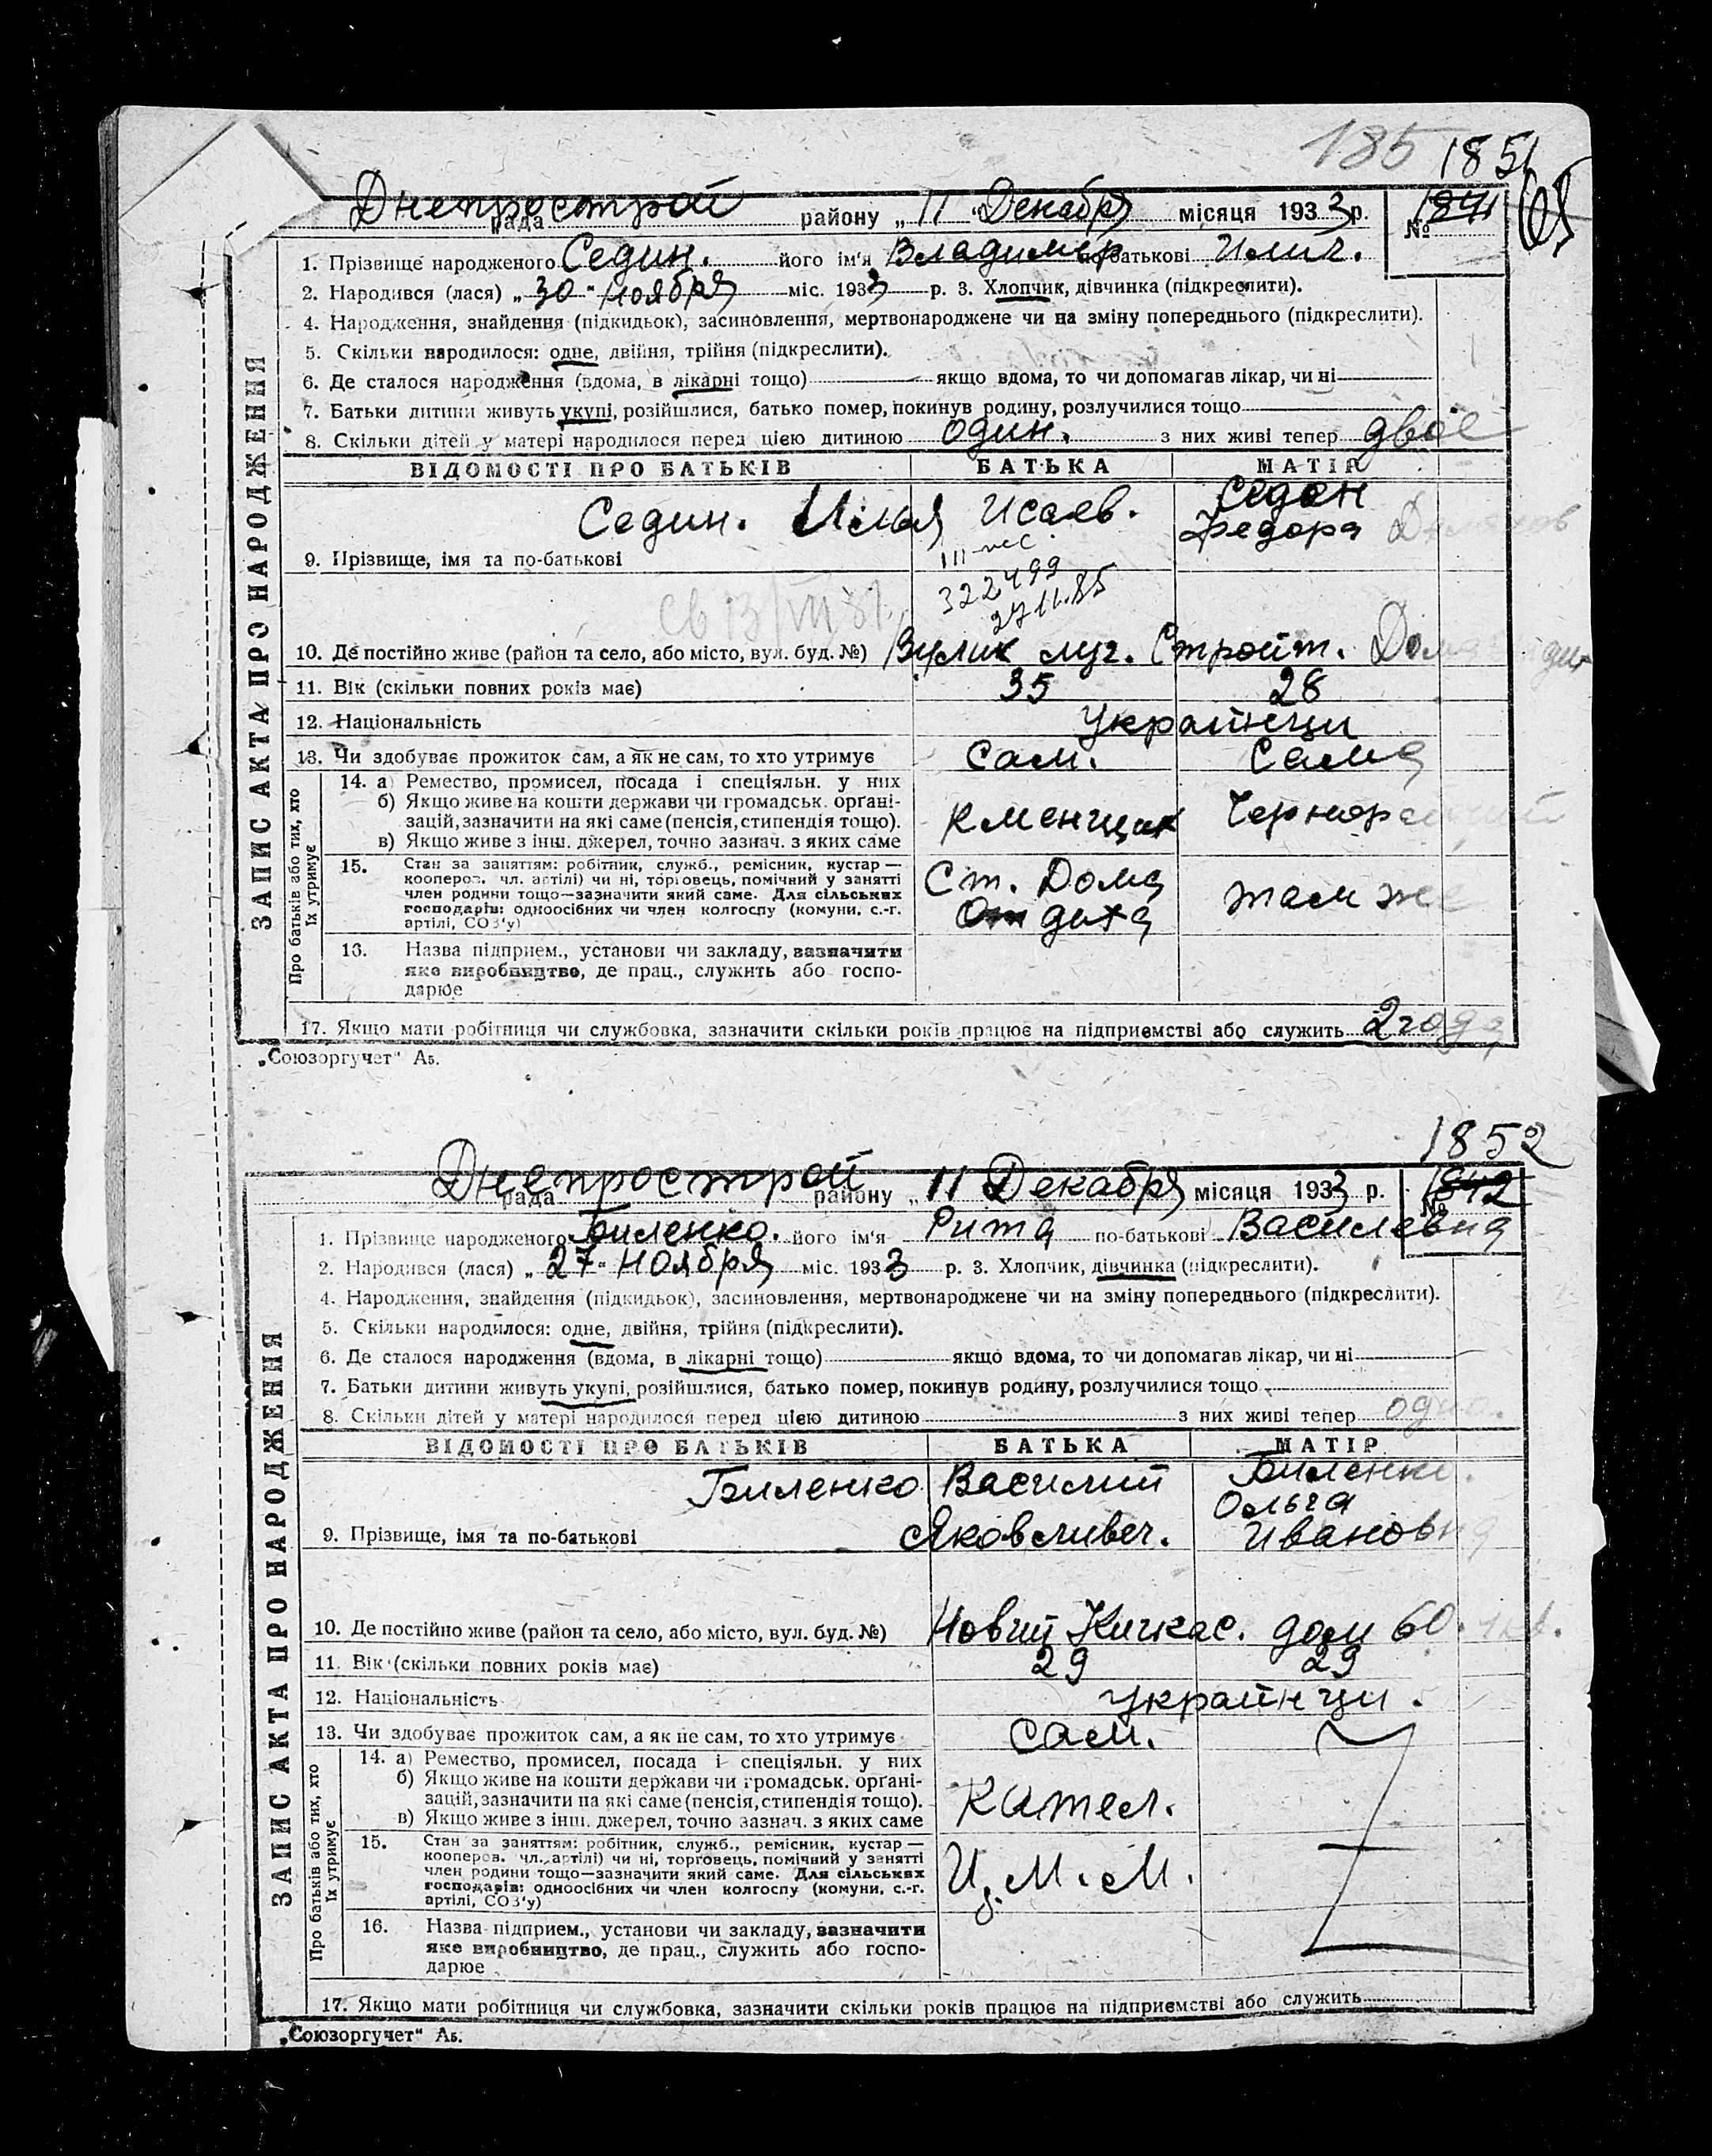 185 1851
Днепрострой
рада району „ 11 " Декабря місяця 1933 р. № 1841 65
1. Прізвище народженого Седин. його ім'я Владимер по-батькові Илич.
2. Народився (лася) „ 30 " Ноября міс. 1933 р. 3. Хлопчик, дівчинка (підкреслити).
4. Народження, знайдення (підкидьок), засиновлення, мертвонароджене чи на зміну попереднього (підкреслити).
5. Скільки народилося: одне, двійня, трійня (підкреслити).
6. Де сталося народження (вдома, в лікарні тощо) якщо вдома, то чи допомагав лікар, чи ні
7. Батьки дитини живуть укупі, розійшлися, батько помер, покинув родину, розлучилися тощо
8. Скільки дітей у матері народилося перед цією дитиною один. з них живі тепер двоє
ВІДОМОСТІ ПРО БАТЬКІВ БАТЬКА МАТІР
Седин. Илья Исаев. Седон
Федора
9. Прізвище, імя та по-батькові
322499
27 11.85
св 13/VII 81.
10. Де постійно живе (район та село, або місто, вул. буд. №) Стройт.
11. Вік (скільки повних років має) 35 28
12. Національність Украйнци
13. Чи здобуває прожиток сам, а як не сам, то хто утримує Сам. Сама
14. а) Ремество, промисел, посада і спеціяльн. у них
б) Якщо живе на кошти держави чи громадськ. орґані-
зацій, зазначити на які саме (пенсія, стипендія тощо).
в) Якщо живе з інш. джерел, точно зазнач. з яких саме
кменщик Чернорабочий
15. Стан за заняттям: робітник, служб., ремісник, кустар —
кооперов. чл. артілі) чи ні, торговець, помічний у занятті
член родини тощо—зазначити який саме. Для сільських
господарів: одноосібних чи член колгоспу (комуни, с.-г.
артілі, СОЗ'у)
Ст. Дома
От дыха
там же
13. Назва підприєм., установи чи закладу, зазначити
яке виробництво, де прац., служить або госпо-
дарює
17. Якщо мати робітниця чи службовка, зазначити скільки років працює на підприємстві або служить 2 года
ЗАПИС АКТА ПРО НАРОДЖЕННЯ
Про батьків або тих, хто
їх утримує
„Союзоргучет" Аб.
1852
Днепрострой
рада району „ 11 Декабря місяця 1933 р. № 1842
1. Прізвище народженого Биленко. його ім'я Рита по-батькові Василевна
2. Народився (лася) „ 27 " Ноября міс. 1933 р. 3. Хлопчик, дівчинка (підкреслити).
4. Народження, знайдення (підкидьок), засиновлення, мертвонароджене чи на зміну попереднього (підкреслити).
5. Скільки народилося: одне, двійня, трійня (підкреслити).
6. Де сталося народження (вдома, в лікарні тощо) якщо вдома, то чи допомагав лікар, чи ні
7. Батьки дитини живуть укупі, розійшлися, батько помер, покинув родину, розлучилися тощо
8. Скільки дітей у матері народилося перед цією дитиною з них живі тепер одно.
ВІДОМОСТІ ПРО БАТЬКІВ БАТЬКА МАТІР
Биленко Василий Биленко.
Ольга
9. Прізвище, імя та по-батькові Яковливеч. Ивановна
10. Де постійно живе (район та село, або місто, вул. буд. №) Новый Кичкас. дом 60. 1 кв.
11. Вік (скільки повних років має) 29 29
12. Національність Украйнци.
13. Чи здобуває прожиток сам, а як не сам, то хто утримує сам.
14. а) Ремество, промисел, посада і спеціяльн. у них
б) Якщо живе на кошти держави чи громадськ. орґані-
зацій, зазначити на які саме (пенсія, стипендія тощо).
в) Якщо живе з інш. джерел, точно зазнач. з яких саме
Кател.
15. Стан за заняттям: робітник, служб., ремісник, кустар —
кооперов. чл. артілі) чи ні, торговець, помічний у занятті
член родини тощо—зазначити який саме. Для сільських
господарів: одноосібних чи член колгоспу (комуни, с.-г.
артілі, СОЗ'у)
Ц. М. М.
16. Назва підприєм., установи чи закладу, зазначити
яке виробництво, де прац., служить або госпо-
дарює
17. Якщо мати робітниця чи службовка, зазначити скільки років працює на підприємстві або служить
ЗАПИС АКТА ПРО НАРОДЖЕННЯ
Про батьків або тих, хто
їх утримує
„Союзоргучет" Аб.